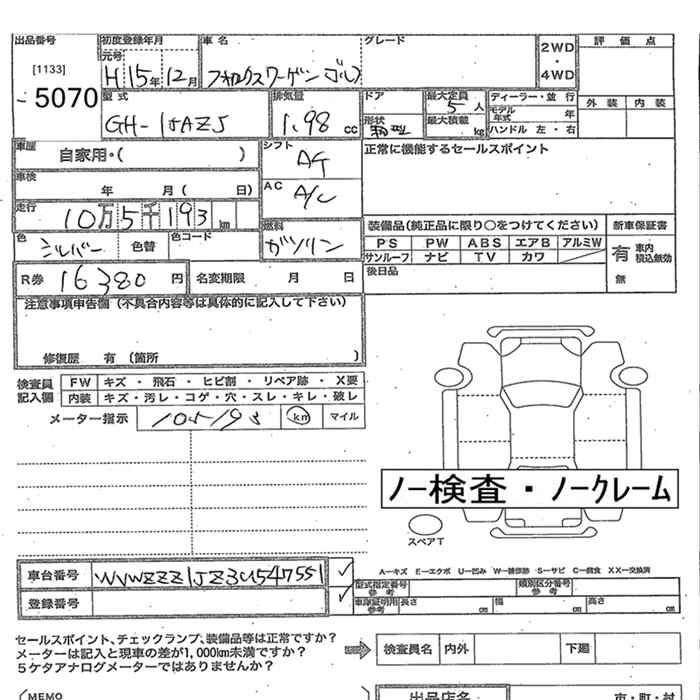 出品番号 初度登録年月 車名 グレード
元号
[1133] H 15年 12月 フォルクスワーゲン ゴルフ 2WD・4WD 評価点
5070
型式 排気量 ドア 最大定員 ディーラー・並行 外装 内装
5人 モデル年式 年
GH-1JAZJ 1.98cc 形状 最大積載 kg ハンドル 左・右
車歴 自家用・( ) シフト AT 正常に機能するセールスポイント
車検 年 月( 日) AC A/C
走行 10万5千193km
装備品(純正品に限り○をつけてください) 新車保証書
色 シルバー 色替 色コード 燃料 ガソリン PS PW ABS エアB アルミW 有 車内積込無効
サンルーフ ナビ TV カワ
R券 16380円 名変期限 月 日 後日品 無
注意事項申告欄(不具合内容等は具体的に記入して下さい)
修復歴 有(箇所 )
検査員 FW キズ・飛石・ヒビ割・リペア跡・X要
記入欄 内装 キズ・汚レ・コゲ・穴・スレ・キレ・破レ
メーター指示 105193 km マイル
ノー検査・ノークレーム
スペアT
A−キズ E−エクボ U−凹み W−補修跡 S−サビ C−腐食 XX−交換済
車台番号 WVWZZZ1JZ3U547551 型式指定番号 参考 類別区分番号 参考
登録番号 車庫証明用 参考 長さ cm 幅 cm 高さ cm
セールスポイント、チェックランプ、装備品等は正常ですか?
メーターは記入と現車の差が1,000km未満ですか? 検査員名 内外 下廻
5ケタアナログメーターではありませんか?
MEMO 出品店名 市・町・村